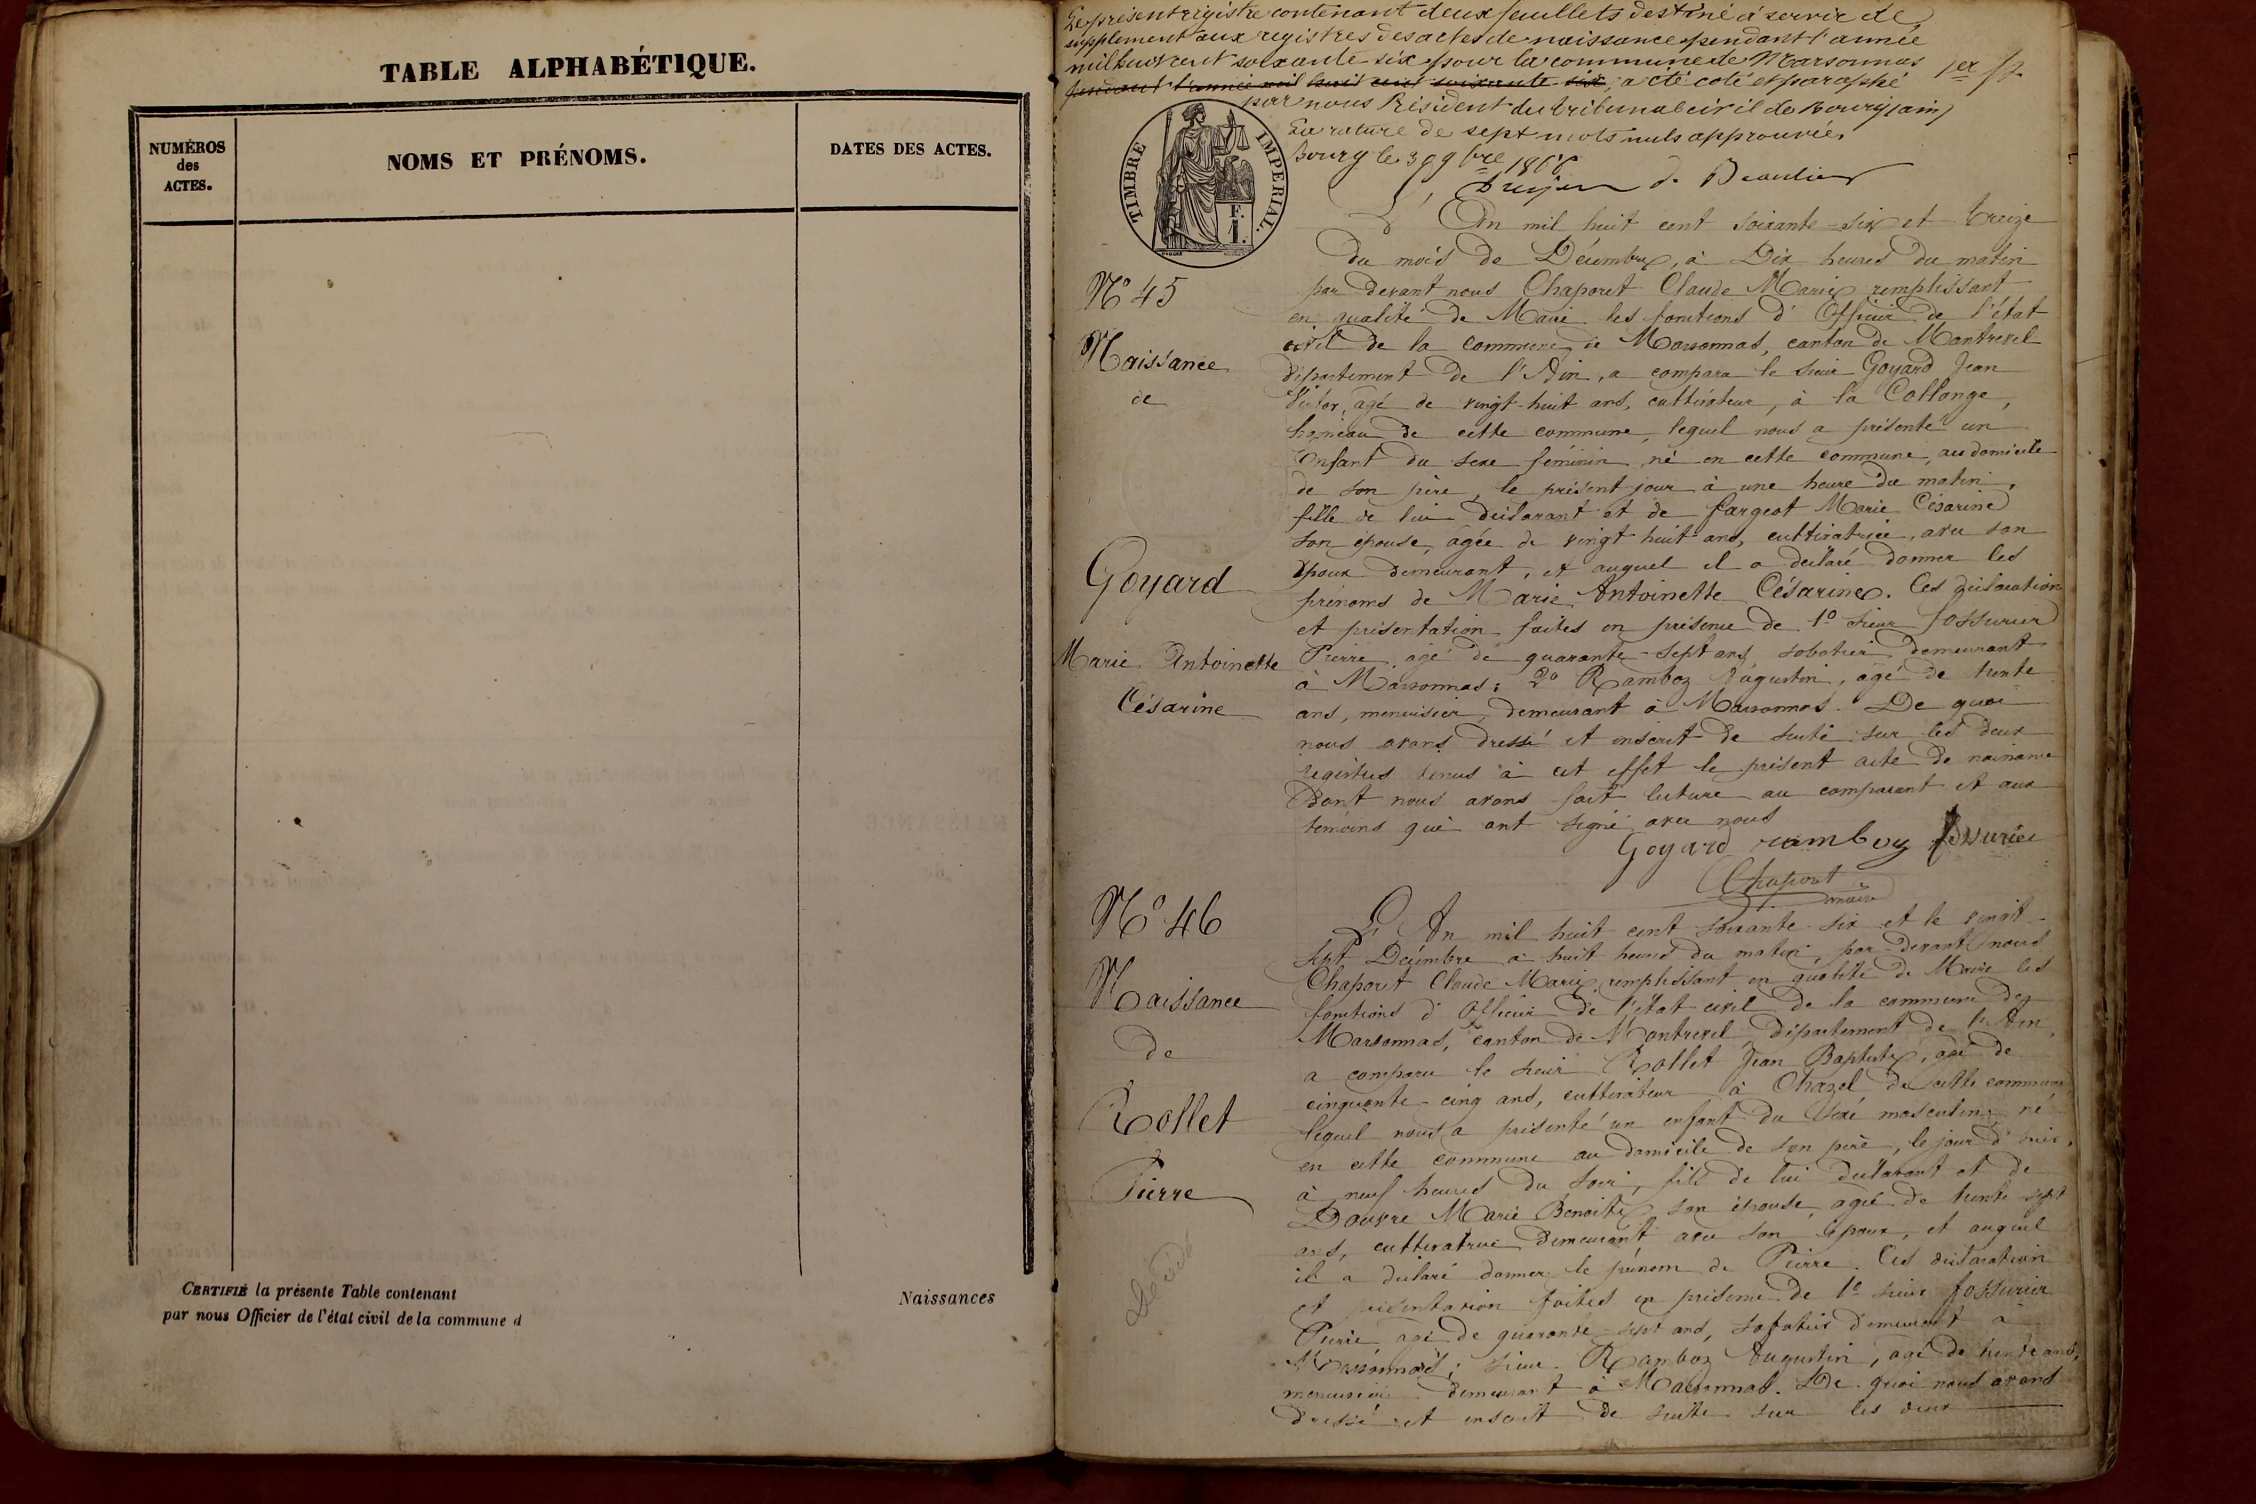 TABLE ALPHABÉTIQUE.
NUMÉROS
des
ACTES.
NOMS ET PRÉNOMS.
DATES DES ACTES.
CERTIFIÉ la présente Table contenant
par nous Officier de l'état civil de la commune d
Naissances
Le présent registre contenant deux feuillets destiné à servir de
supplément aux registres des actes de naissance pendant l'année
mil huit cent soixante six pour la commune de Marsonnas
pendant l'année mil huit cent soixante six, a été coté et paraphé
par nous Président du tribunal civil de Bourg (ain)
La rature de sept mots nuls approuvée
Bourg le 9bre 1866
de Beaulieu
1er
TIMBRE IMPÉRIAL.
F.
1.
N° 45
Naissance
de
Goyard
Marie Antoinette
Césarine
L'An mil huit cent soixante-six et treize
du mois de Décembre, à Dix heures du matin
par devant nous Chaporet Claude Marie remplissant
en qualité de Maire les fonctions d'Officier de l'état
civil de la commune de Marsonnas, canton de Montrevel
département de l'Ain, a comparu le sieur Goyard Jean
Victor, agé de vingt-huit ans, cultivateur, à la Collonge,
hameau de cette commune, lequel nous a présenté un
Enfant du sexe féminin, né en cette commune, au domicile
de son père, le présent jour à une heure du matin,
fille de lui déclarant et de fargeot Marie Césarine
son épouse, agée de vingt huit ans, cultivatrice, avec son
époux demeurant, et auquel il a déclaré donner les
prénoms de Marie Antoinette Césarine. Ces déclaration
et présentation faites en présence de 1° sieur fossurier
Pierre, agé de quarante-sept ans, sabotier, demeurant
à Marsonnas; 2° Ramboz Augustin, agé de trente
ans, menuisier, demeurant à Marsonnas. De quoi
nous avons dressé et inscrit de suite sur les deux
registres tenus à cet effet le présent acte de naissance
dont nous avons fait lecture au comparant et aux
témoins qui ont signé avec nous
Goyard ramboz fossurier
Chaporet
maire
N° 46
Naissance
de
Rollet
Pierre
L'An mil huit cent soixante-six et le vingt-
sept Décembre à huit heures du matin, par-devant nous
Chaporet Claude Marie, remplissant en qualité de Maire les
fonctions d'Officier de l'état civil de la commune de
Marsonnas, canton de Montrevel, département de l'Ain,
a comparu le sieur Rollet Jean Baptiste, agé de
cinquante-cinq ans, cultivateur à Chazel de cette commune
lequel nous a présenté un enfant du sexe masculin, né
en cette commune au domicile de son père, le jour d'hier,
à neuf heures du soir, fils de lui déclarant et de
Douvre Marie Benoite, son épouse, agée de trente-sept
ans, cultivatrice demeurant avec son époux, et auquel
il a déclaré donner le prénom de Pierre. Ces déclaration
et présentation faites en présence de 1° sieur fossurier
Pierre, agé de quarante-sept ans, sabotier demeurant à
Marsonnas; sieur Ramboz Augustin, agé de trente ans,
menuisier demeurant à Marsonnas. De quoi nous avons
dressé et inscrit de suite sur les deux